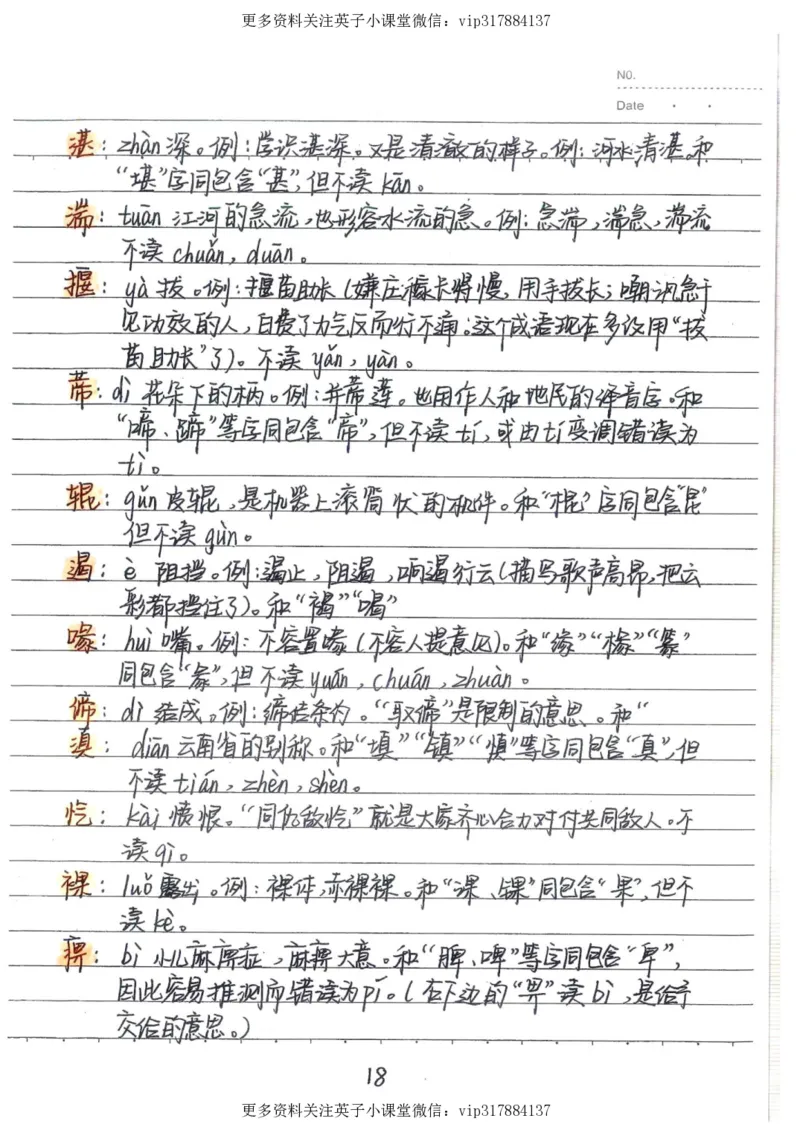 更多资料关注英子小课堂微信：vip317884137
N0.
Date
湛：zhàn 深。例：学识湛深。又是清澈的样子。例：河水清湛。和
“堪”字同包含“甚”，但不读 kān。
湍：tuān 江河的急流，也形容水流的急。例：急湍，湍急，湍流
不读 chuǎn，duān。
揠：yà 拔。例：揠苗助长（嫌庄稼长得慢，用手拔长；嘲讽急于
见功效的人，白费了力气反而行不通；这个成语现在多说用“拔
苗助长”了）。不读 yǎn，yàn。
蒂：dì 花朵下的柄。例：并蒂莲。也用作人和地民的译音字。和
“啼、蹄”等字同包含“帝”，但不读 tí，或由 tí 变调错读为
tì。
辊：gǔn 皮辊，是机器上滚筒状的机件。和“棍”字同包含“昆”
但不读 gùn。
遏：è 阻挡。例：遏止，阻遏，响遏行云（描写歌声高昂，把云
彩都挡住了）。和“褐”“喝”
喙：huì 嘴。例：不容置喙（不容人提意见）。和“缘”“椽”“篆”
同包含“彖”，但不读 yuán，chuán，zhuàn。
缔：dì 结成。例：缔结条约。“取缔”是限制的意思。和“
滇：diān 云南省的别称。和“填”“镇”“慎”等字同包含“真”，但
不读 tián，zhèn，shèn。
忾：kài 愤恨。“同仇敌忾”就是大家齐心合力对付共同敌人。不
读 qì。
裸：luǒ 露出。例：裸体，赤裸裸。和“课、锞”同包含“果”，但不
读 kè。
痹：bì 小儿麻痹症，麻痹大意。和“脾、啤”等字同包含“卑”，
因此容易推测而错读为 pí。（右下边的“畀”读 bì，是给予
交给的意思。）
18
更多资料关注英子小课堂微信：vip317884137